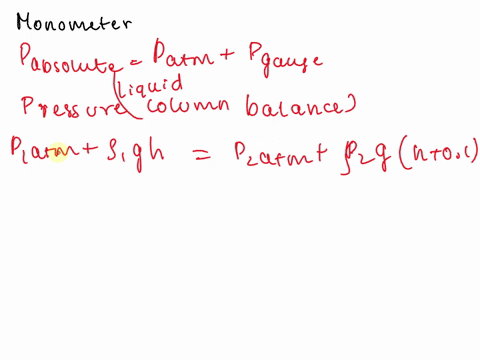 Monometer
Pabsolute = Patm + Pgauge
Pressure (liquid column balance)
P1atm + ρ1gh = P2atm + ρ2g(h+0.1)